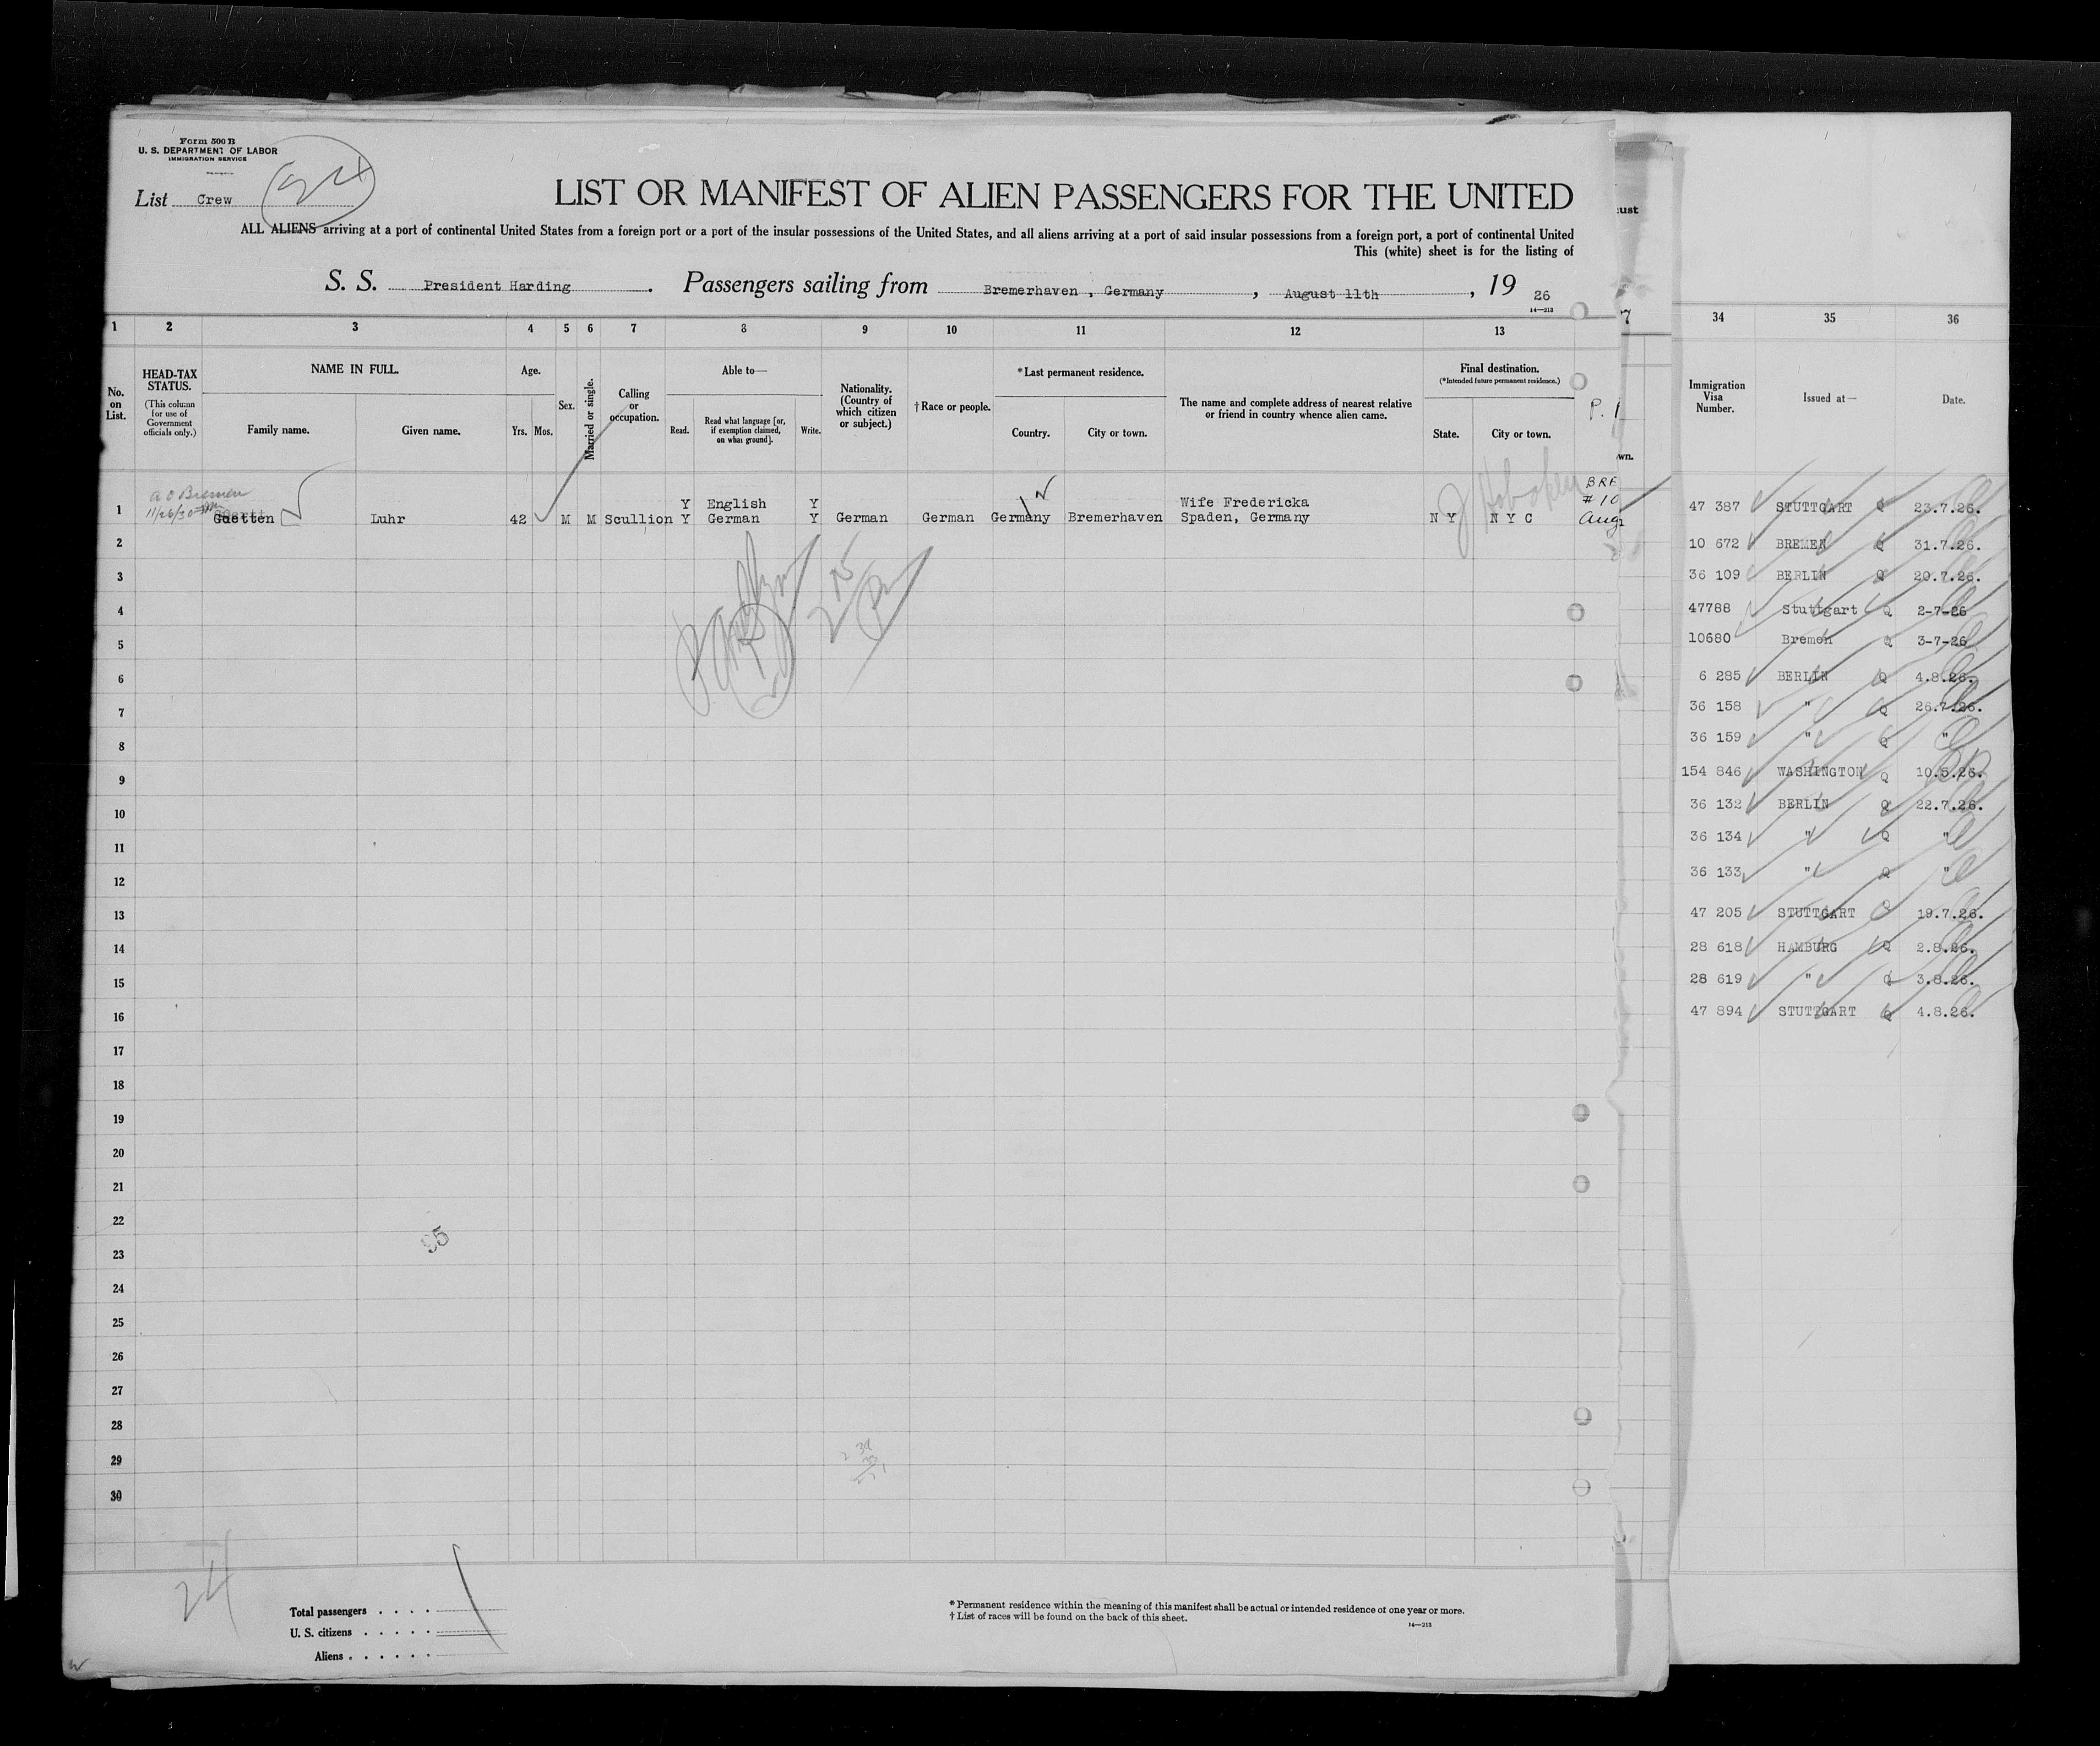 Form 500 B
U. S. DEPARTMENT OF LABOR
IMMIGRATION SERVICE
List Crew
LIST OR MANIFEST OF ALIEN PASSENGERS FOR THE UNITED
ALL ALIENS arriving at a port of continental United States from a foreign port or a port of the insular possessions of the United States, and all aliens arriving at a port of said insular possessions from a foreign port, a port of continental United
This (white) sheet is for the listing of
S. S. President Harding. Passengers sailing from Bremerhaven, Germany, August 11th, 19 26
14—213
1 2 3 4 5 6 7 8 9 10 11 12 13
No. on List.
HEAD-TAX STATUS.
(This column for use of Government officials only.)
NAME IN FULL.
Family name. Given name.
Age.
Yrs. Mos.
Sex.
Married or single.
Calling or occupation.
Able to—
Read. Read what language [or, if exemption claimed, on what ground]. Write.
Nationality. (Country of which citizen or subject.)
† Race or people.
*Last permanent residence.
Country. City or town.
The name and complete address of nearest relative or friend in country whence alien came.
Final destination.
(*Intended future permanent residence.)
State. City or town.
a o Bremen
11/26/30
BRE
# 10
Y English Y Wife Fredericka
1 Guetten Luhr 42 M M Scullion Y German Y German German Germany Bremerhaven Spaden, Germany N Y N Y C Aug
Hoboken
2
3
4
5
6
7
8
9
10
11
12
13
14
15
16
17
18
19
20
21
22
23
24
25
26
27
28
29
30
95
24
Total passengers
U. S. citizens
Aliens
* Permanent residence within the meaning of this manifest shall be actual or intended residence of one year or more.
† List of races will be found on the back of this sheet.
14—213
ust
7
wn.
34 35 36
Immigration Visa Number. Issued at— Date.
47 387 STUTTGART Q 23.7.26.
10 672 BREMEN Q 31.7.26.
36 109 BERLIN Q 20.7.26.
47788 Stuttgart Q 2-7-26
10680 Bremen Q 3-7-26
6 285 BERLIN Q 4.8.26.
36 158 " Q 26.7.26.
36 159 " Q "
154 846 WASHINGTON Q 10.5.26.
36 132 BERLIN Q 22.7.26.
36 134 " Q "
36 133 " Q "
47 205 STUTTGART 19.7.26.
28 618 HAMBURG Q 2.8.26.
28 619 " Q 3.8.26.
47 894 STUTTGART Q 4.8.26.